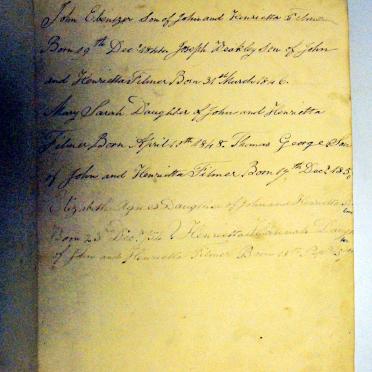 John Ebenezer Son of John and Henrietta Filmer
Born 19th Decr 1844 Joseph Weakley Son of John
and Henrietta Filmer Born 31st March 1846.
Mary Sarah Daughter of John and Henrietta
Filmer Born April 10th 1848. Thomas George Son
of John and Henrietta Filmer Born 19th Decr 185
Elizabeth Agnes Daughter of John and Henrietta
Born 23d Decr Henrietta Hannah Daugh
of John and Henrietta Filmer Born 18th Sept